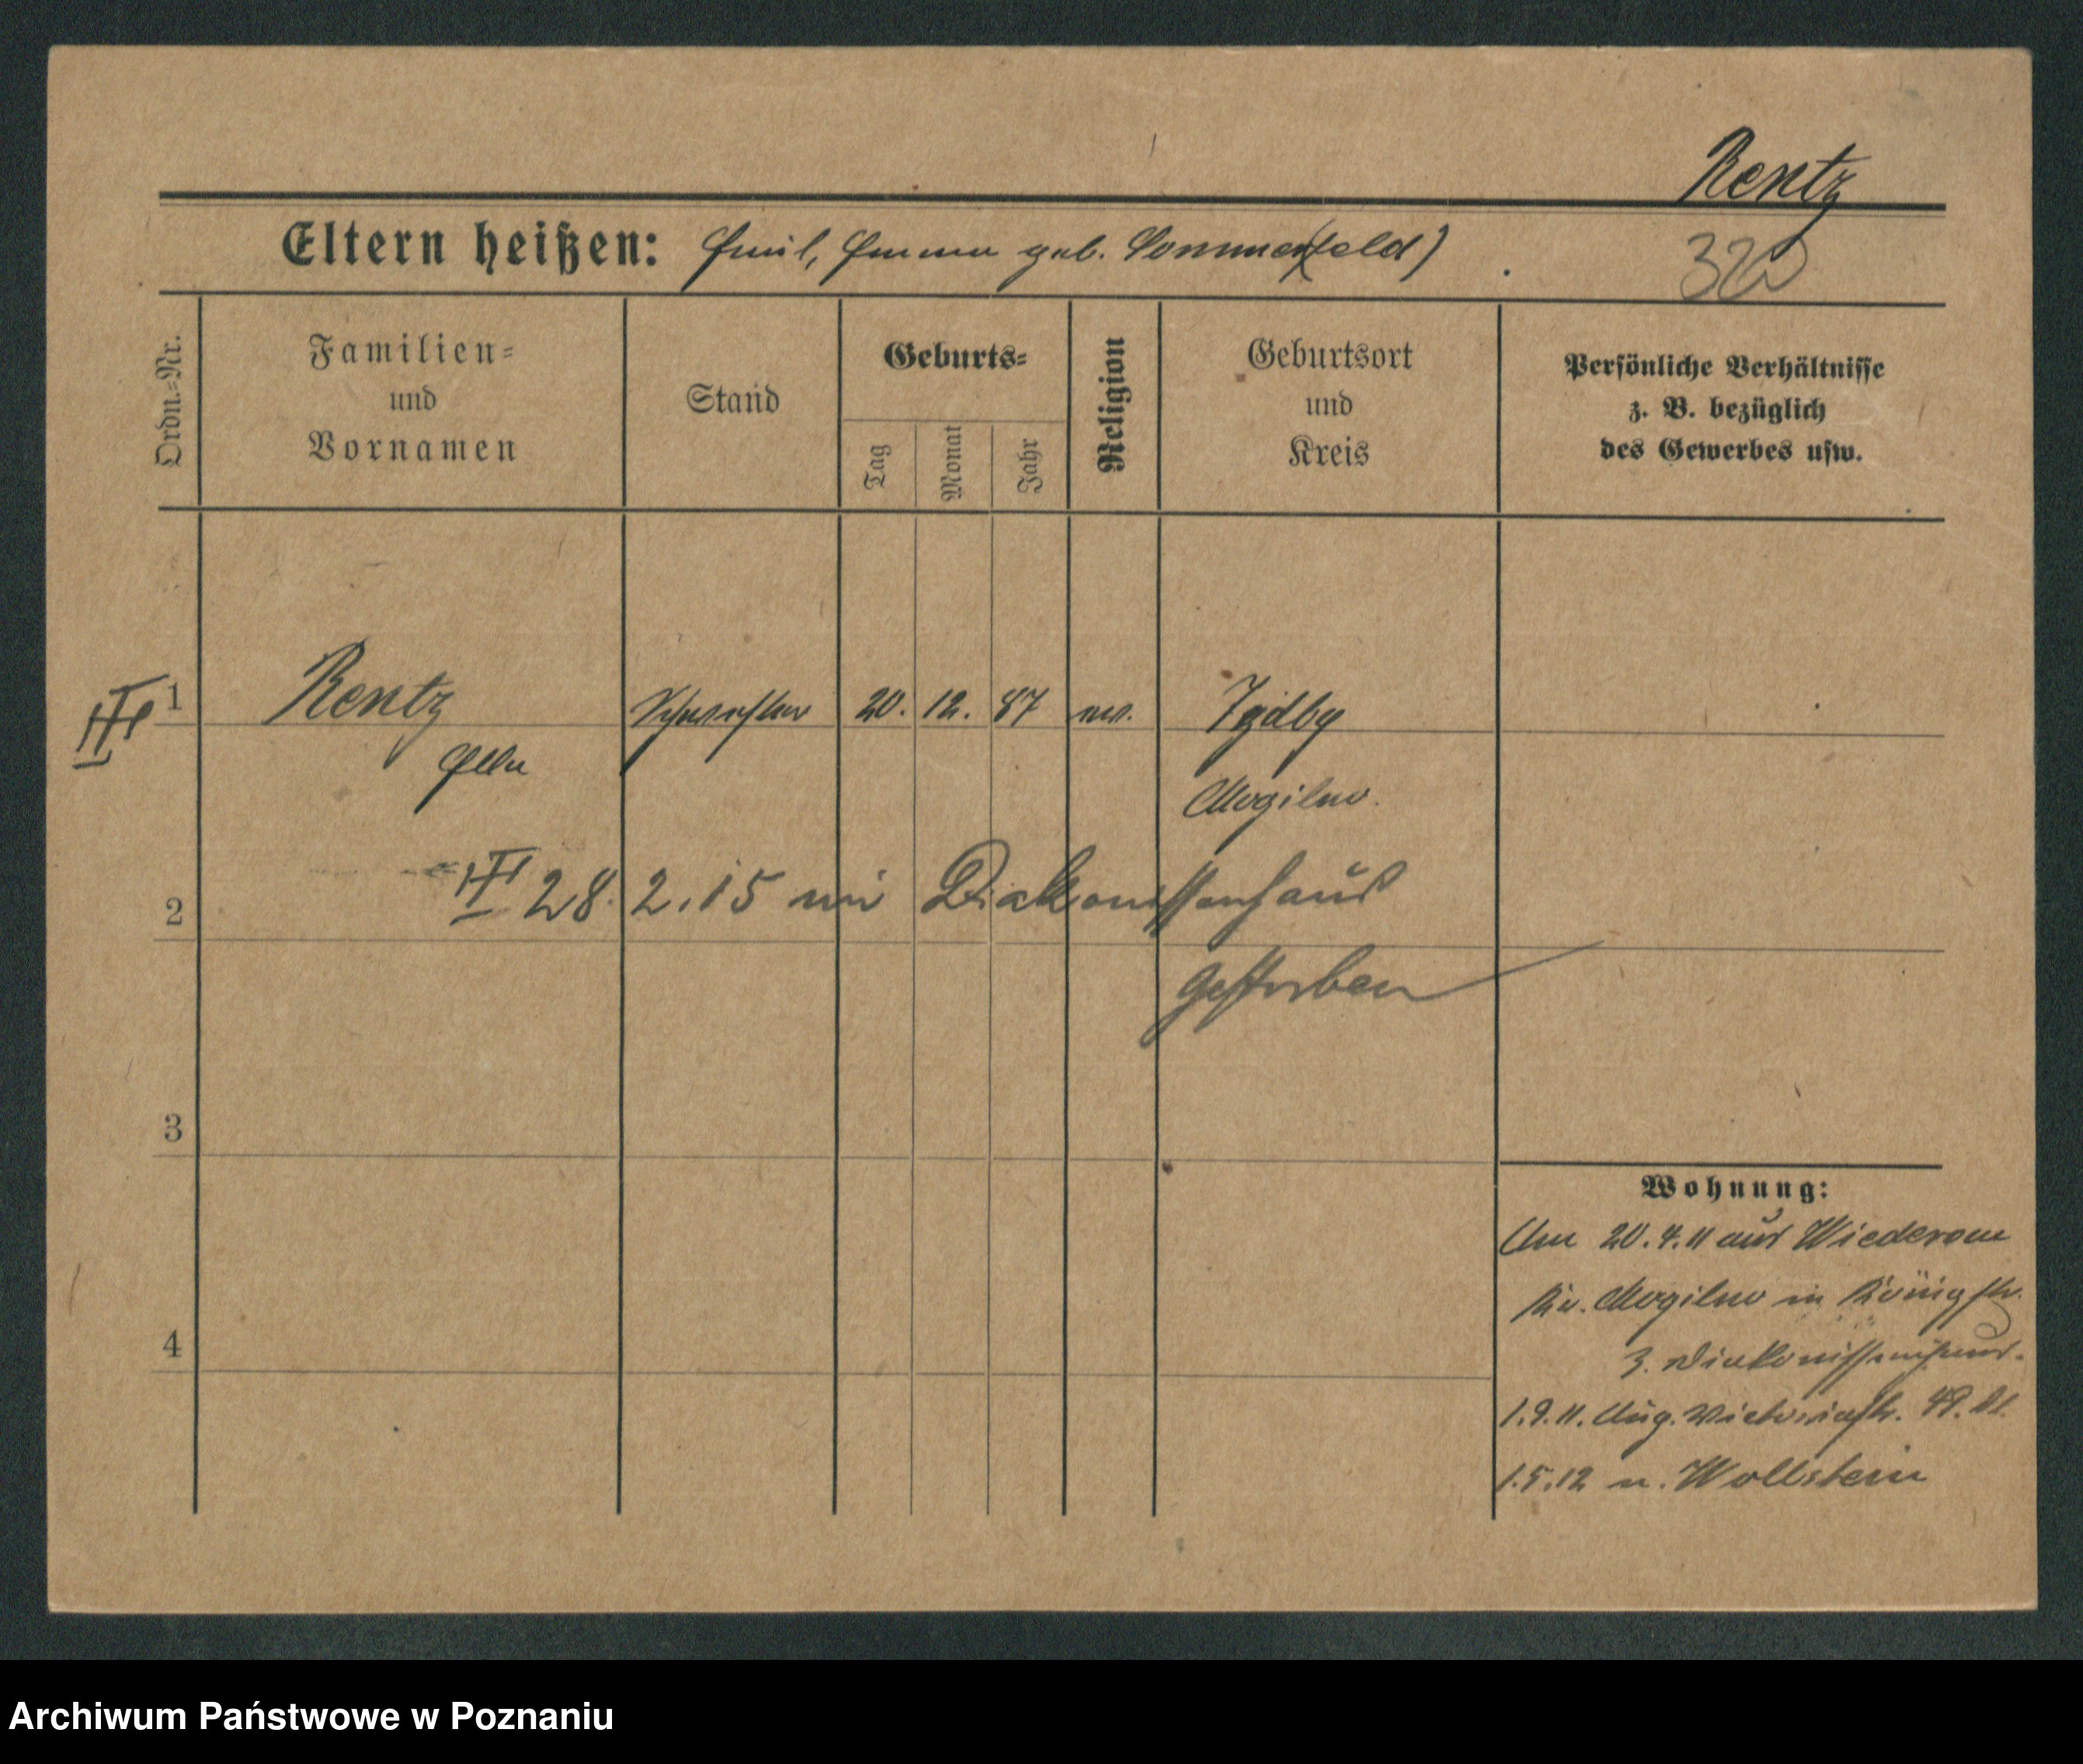 Rentz
Eltern heißen: Emil, Emma geb. Sommerfeld)
320
Ordn.=Nr.
Familien=
und
Vornamen
Stand
Geburts=
Tag
Monat
Jahr
Religion
Geburtsort
und
Kreis
Persönliche Verhältnisse
z. B. bezüglich
des Gewerbes usw.
1
Rentz
Schwester
20. 12. 87
ev.
Mogilno.
Ella
III 28. 2. 15 im Diakonissenhaus
gestorben
2
3
4
Wohnung:
Am 20.4.11 aus Wiederau
Kr. Mogilno in Königstr.
3. Diakonissenhaus.
1.9.11. Aug. Victoriastr. 49.
1.5.12 n. Wollstein
Archiwum Państwowe w Poznaniu